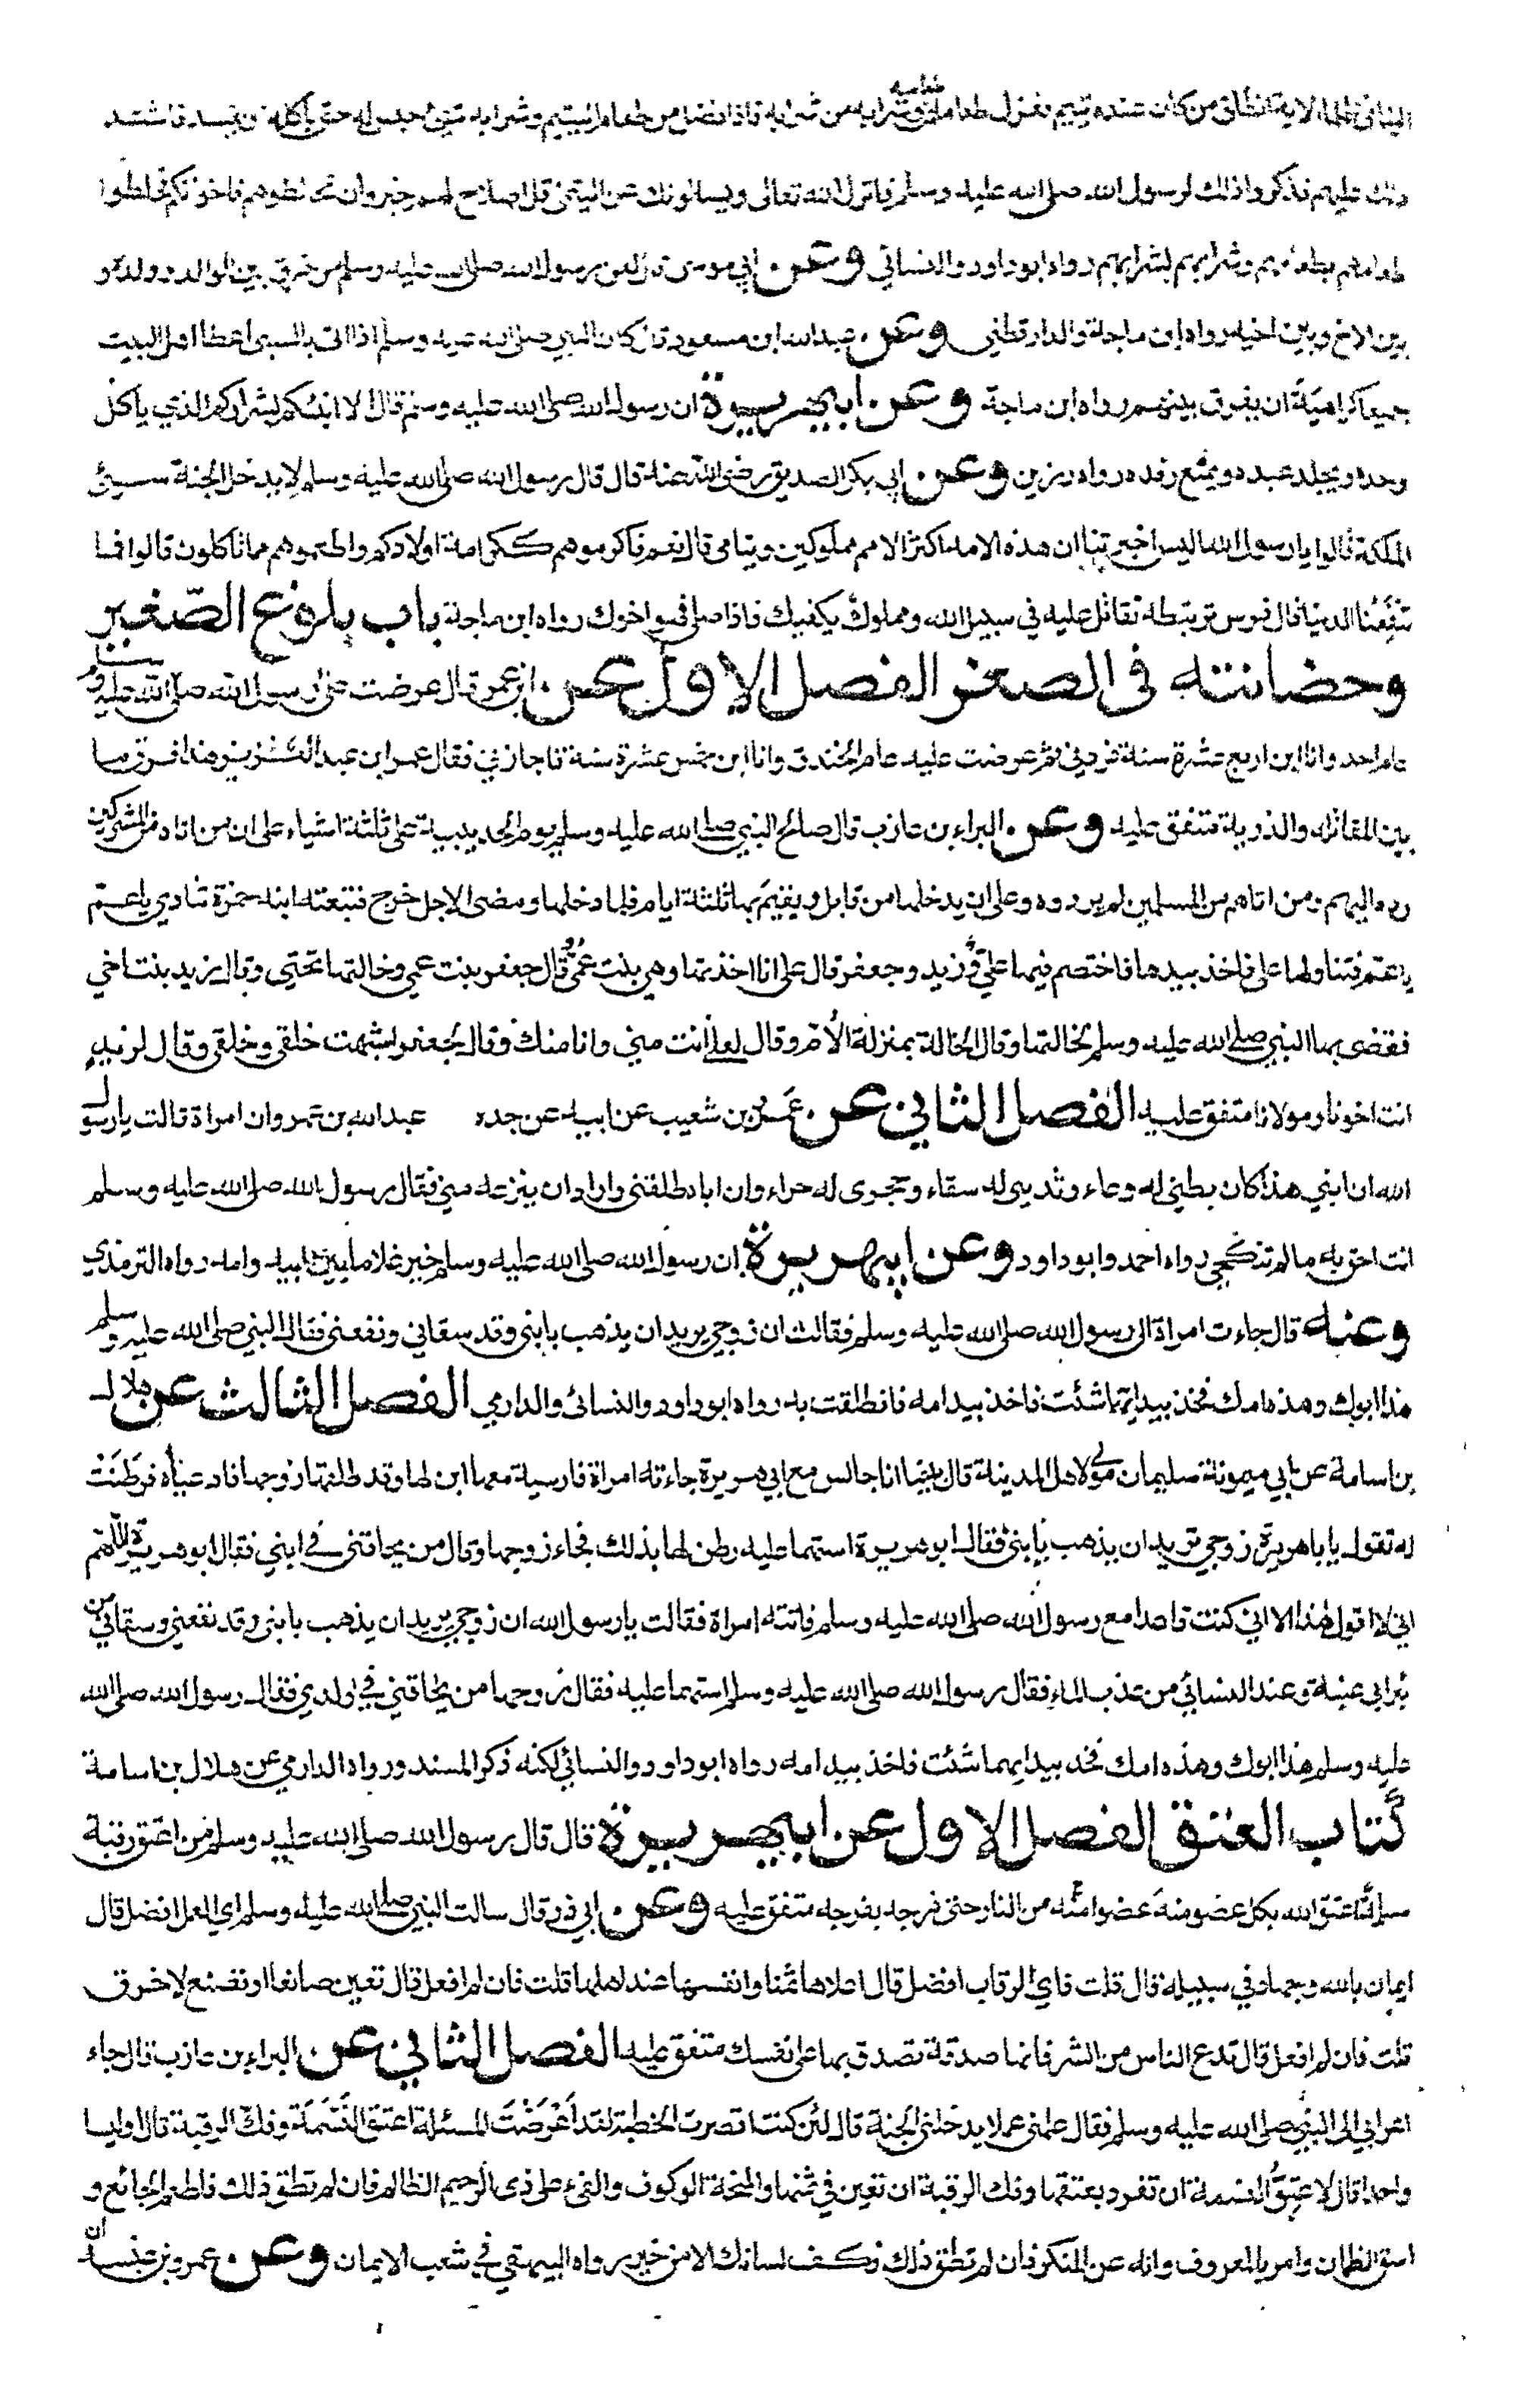 اليتامى ظلما الاية انطلق من كان عنده يتيم فعزل طعامه من طعامه وشرابه من شرابه فاذا فضل من طعام اليتيم وشرابه شئ حبس له حتى ياكله او يفسد فاشتد
ذلك عليهم فذكروا ذلك لرسول الله صلى الله عليه وسلم فانزل الله تعالى ويسئلونك عن اليتمى قل اصلاح لهم خير وان تخالطوهم فاخوانكم فخلطوا
طعامهم بطعامهم وشرابهم بشرابهم رواه ابوداود والنسائي وعن ابي موسى قال لعن رسول الله صلى الله عليه وسلم من فرق بين الوالد وولده و
بين الاخ وبين اخيه رواه ابن ماجة والدارقطني وعن عبدالله ابن مسعود قال كان النبي صلى الله عليه وسلم اذا اتى بالسبى اعطا اهل البيت
جميعا كراهية ان يفرق بينهم رواه ابن ماجة وعن ابي هريرة ان رسول الله صلى الله عليه وسلم قال الا انبئكم بشراركم الذي ياكل
وحده ويجلد عبده ويمنع رفده رواه رزين وعن ابي بكر الصديق رضى الله عنه قال قال رسول الله صلى الله عليه وسلم لا يدخل الجنة سيئ
الملكة قالوا يا رسول الله اليس اخبرتنا ان هذه الامة اكثر الامم مملوكين ويتامى قال نعم فاكرموهم ككرامة اولادكم واطعموهم مما تاكلون قالوا فما
تنفعنا الدنيا قال فرس تربتطه تقاتل عليه في سبيل الله ومملوك يكفيك فاذا صلى فهو اخوك رواه ابن ماجة باب بلوغ الصغير
وحضانته في الصغر الفصل الاول عن ابن عمر قال عرضت على رسول الله صلى الله عليه وسلم
عام احد وانا ابن اربع عشرة سنة فردني ثم عرضت عليه عام الخندق وانا ابن خمس عشرة سنة فاجازني فقال عمر ابن عبد العزيز هذا فرق ما
بين المقاتلة والذرية متفق عليه وعن البراء بن عازب قال صالح النبي صلى الله عليه وسلم يوم الحديبية على ثلثة اشياء على ان من اتاه من المشركين
رده اليهم ومن اتاهم من المسلمين لم يردوه وعلى ان يدخلها من قابل ويقيم بها ثلثة ايام فلما دخلها ومضى الاجل خرج فتبعته ابنة حمزة تنادي يا عم
يا عم فتناولها على فاخذ بيدها فاختصم فيها علي وزيد وجعفر قال على انا اخذتها وهي بنت عمي وقال جعفر بنت عمي وخالتها تحتي وقال زيد بنت اخي
فقضى بها النبي صلى الله عليه وسلم لخالتها وقال الخالة بمنزلة الأم وقال لعلي انت مني وانا منك وقال لجعفر اشبهت خلقي وخلقي وقال لزيد
انت اخونا ومولانا متفق عليه الفصل الثاني عن عمرو بن شعيب عن ابيه عن جده عبدالله بن عمرو ان امراة قالت يا رسول
الله ان ابني هذا كان بطني له وعاء وثديي له سقاء وحجري له حواء وان اباه طلقني واراد ان ينزعه مني فقال رسول الله صلى الله عليه وسلم
انت احق به مالم تنكحي رواه احمد وابوداود وعن ابي هريرة ان رسول الله صلى الله عليه وسلم خير غلاما بين ابيه وامه رواه الترمذي
وعنه قال جاءت امراة الى رسول الله صلى الله عليه وسلم فقالت ان زوجي يريد ان يذهب بابني وقد سقاني ونفعني فقال النبي صلى الله عليه وسلم
هذا ابوك وهذه امك فخذ بيد ايهما شئت فاخذ بيد امه فانطلقت به رواه ابوداود والنسائى والدارمي الفصل الثالث عن هلال
بن اسامة عن ابي ميمونة سليمان مولى لاهل المدينة قال بينما انا جالس مع ابي هريرة جاءته امراة فارسية معها ابن لها وقد طلقها زوجها فادعياه فرطنت
له تقول يا اباهريرة زوجي يريد ان يذهب بابني فقال ابو هريرة استهما عليه رطن لها بذلك فجاء زوجها وقال من يحاقني في ابني فقال ابو هريرة اللهم
اني لا اقول هذا الا اني كنت قاعدا مع رسول الله صلى الله عليه وسلم فاتته امراة فقالت يا رسول الله ان زوجي يريد ان يذهب بابني وقد نفعني وسقاني من
بئر ابي عنبة وعند النسائي من عذب الماء فقال رسول الله صلى الله عليه وسلم استهما عليه فقال زوجها من يحاقني في ولدي فقال رسول الله صلى الله
عليه وسلم هذا ابوك وهذه امك فخذ بيد ايهما شئت فاخذ بيد امه رواه ابوداود والنسائي لكنه ذكر المسند ورواه الدارمي عن هلال بن اسامة
كتاب العتق الفصل الاول عن ابي هريرة قال قال رسول الله صلى الله عليه وسلم من اعتق رقبة
مسلمة اعتق الله بكل عضو منه عضوا منه من النار حتى فرجه بفرجه متفق عليه وعن ابي ذر قال سالت النبي صلى الله عليه وسلم اي العمل افضل قال
ايمان بالله وجهاد في سبيله قال قلت فاي الرقاب افضل قال اغلاها ثمنا وانفسها عند اهلها قلت فان لم افعل قال تعين صانعا او تصنع لاخرق
قلت فان لم افعل قال تدع الناس من الشر فانها صدقة تصدق بها على نفسك متفق عليه الفصل الثاني عن البراء بن عازب قال جاء
اعرابي الى النبي صلى الله عليه وسلم فقال علمني عملا يدخلني الجنة قال لئن كنت اقصرت الخطبة لقد اعرضت المسئلة اعتق النسمة وفك الرقبة قال اوليسا
واحدا قال لا عتق النسمة ان تفرد بعتقها وفك الرقبة ان تعين في ثمنها والمنحة الوكوف والفيء على ذي الرحم الظالم فان لم تطق ذلك فاطعم الجائع و
اسق الظمان وامر بالمعروف وانه عن المنكر فان لم تطق ذلك فكف لسانك الا من خير رواه البيهقي في شعب الايمان وعن عمرو بن عبسة ان